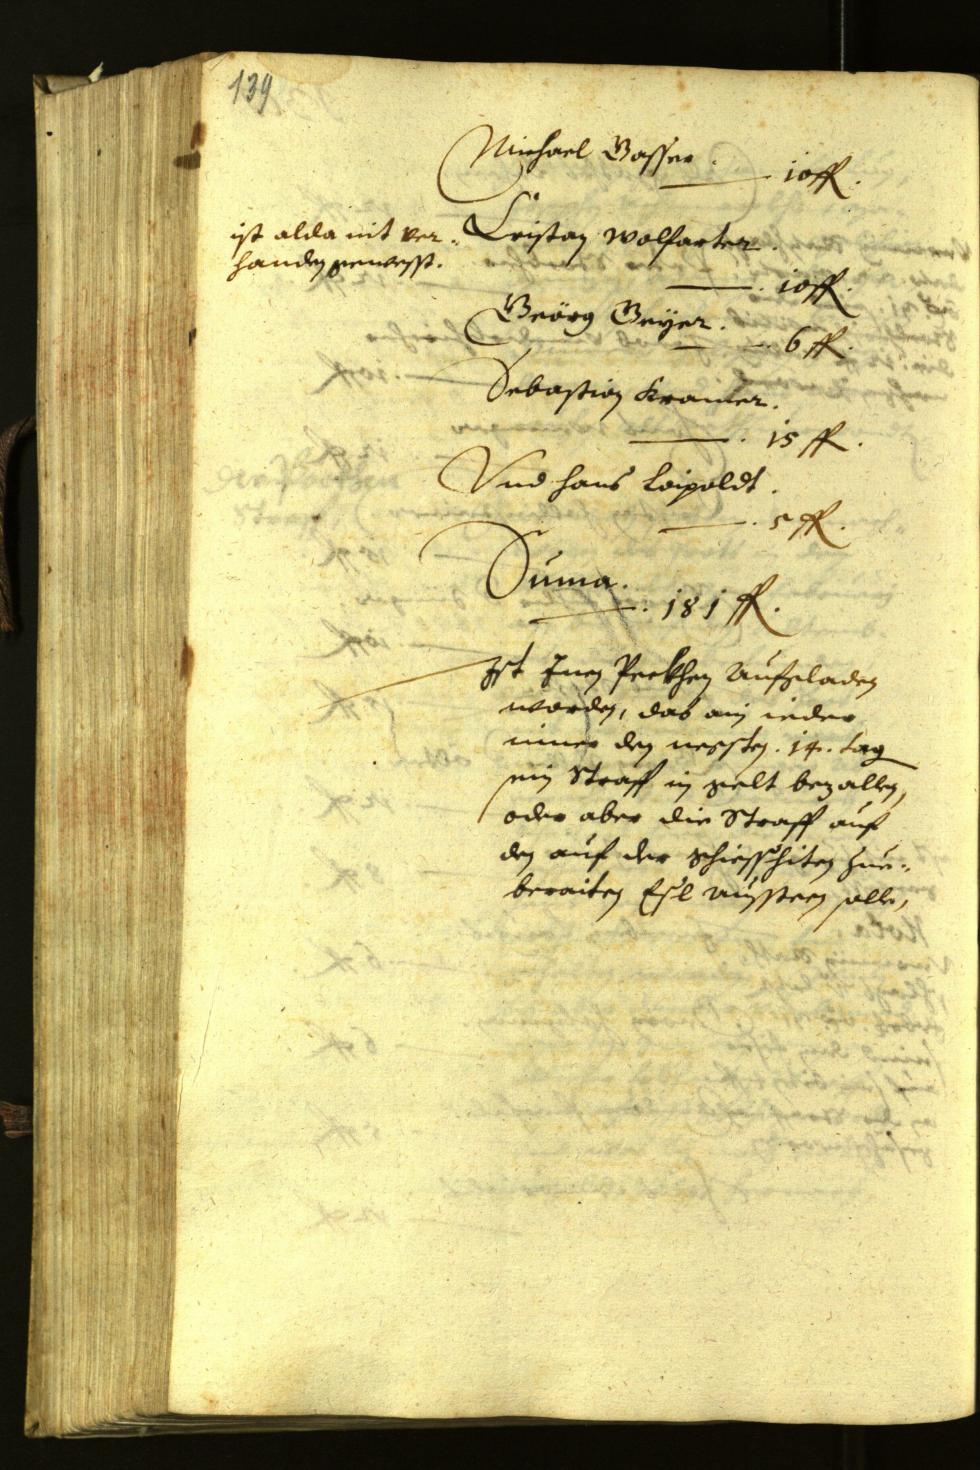 139
Michael Gasser.
10 fl.
ist alda nit ver-
handen gewesst.
Cristan Wolfarter.
10 fl.
Geörg Geyer.
6 fl.
Sebastian Kramer.
15 fl.
Vnd hans Leipoldt.
5 fl.
Suma.
181 fl.
Ist Inen Peckhen aufgeladen
worden, das ain ieder
inner den negsten .14. tag
sein Straff in gelt bezallen,
oder aber die Straff auf
den auf der schiesshiten zue-
beraiten Esl aussteen solle,